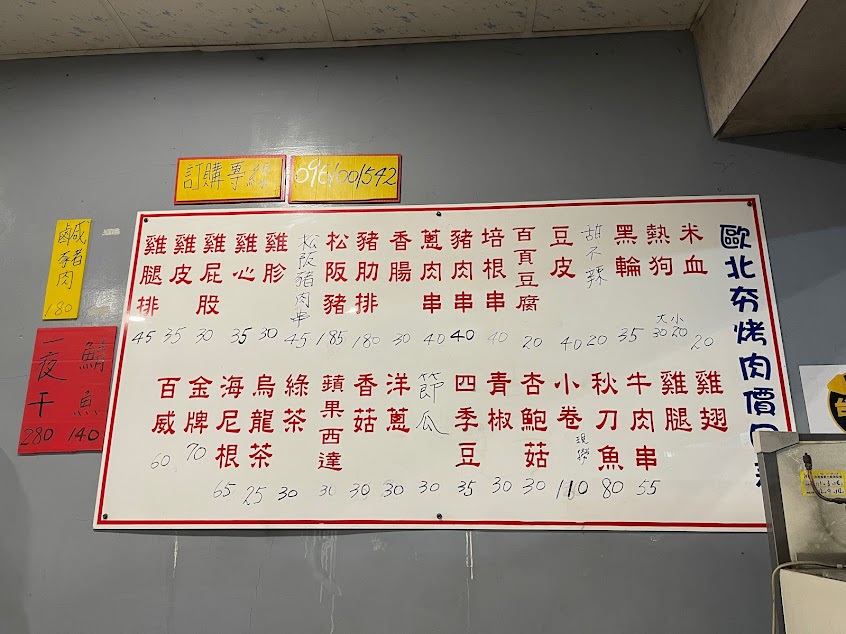 訂購專線
鹹豬肉
180
鯖魚
140
一夜干
280
歐北夯烤肉價
米血
20
熱狗
大 30
小 20
黑輪
35
甜不辣
20
豆皮
40
百頁豆腐
20
培根串
40
豬肉串
40
蔥肉串
40
香腸
30
豬肋排
180
松阪豬
185
松阪豬肉串
45
雞胗
30
雞心
35
雞屁股
30
雞皮
35
雞腿排
45
雞翅
雞腿
牛肉串
55
秋刀魚
80
小卷
現撈
110
杏鮑菇
30
青椒
30
四季豆
35
節瓜
30
洋蔥
30
香菇
30
蘋果西達
30
綠茶
30
烏龍茶
25
海尼根
65
金牌
70
百威
60